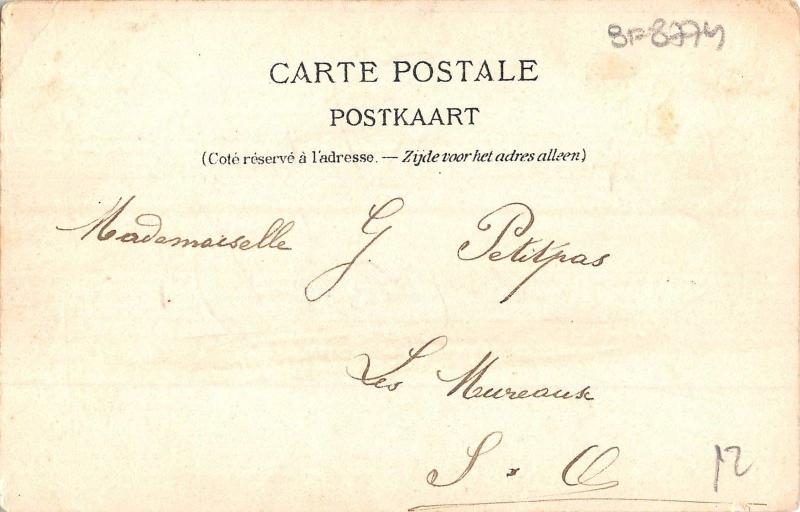 CARTE POSTALE
POSTKAART
(Coté réservé à l'adresse. — Zijde voor het adres alleen)
Mademoiselle G. Petitpas
Les Mureaux
S. O
12